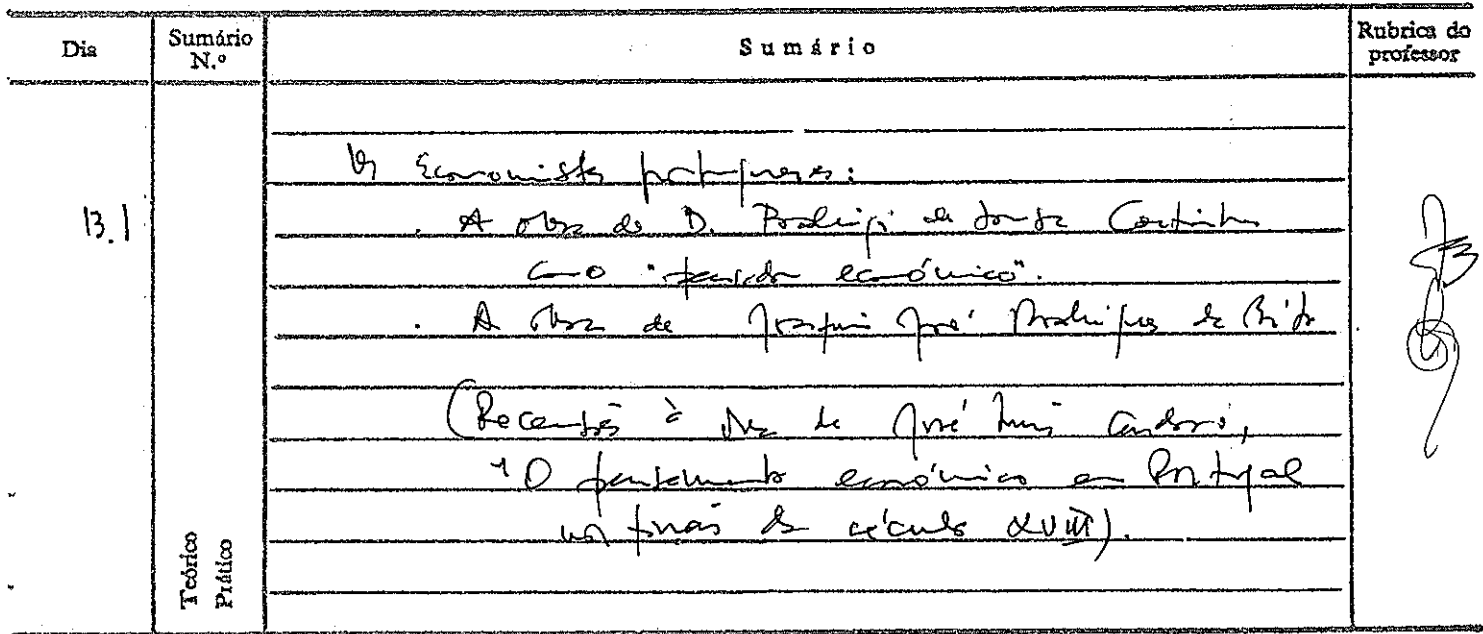 Dia
Sumário N.º
Sumário
Rubrica do professor
13.1
Os Economistas portugueses:
. A obra de D. Rodrigo de Sousa Coutinho
como "pensador económico".
. A obra de Joaquim José Rodrigues de Brito
(Recensão à obra de José Luís Cardoso,
"O pensamento económico em Portugal
nos finais do século XVIII).
Teórico
Prático